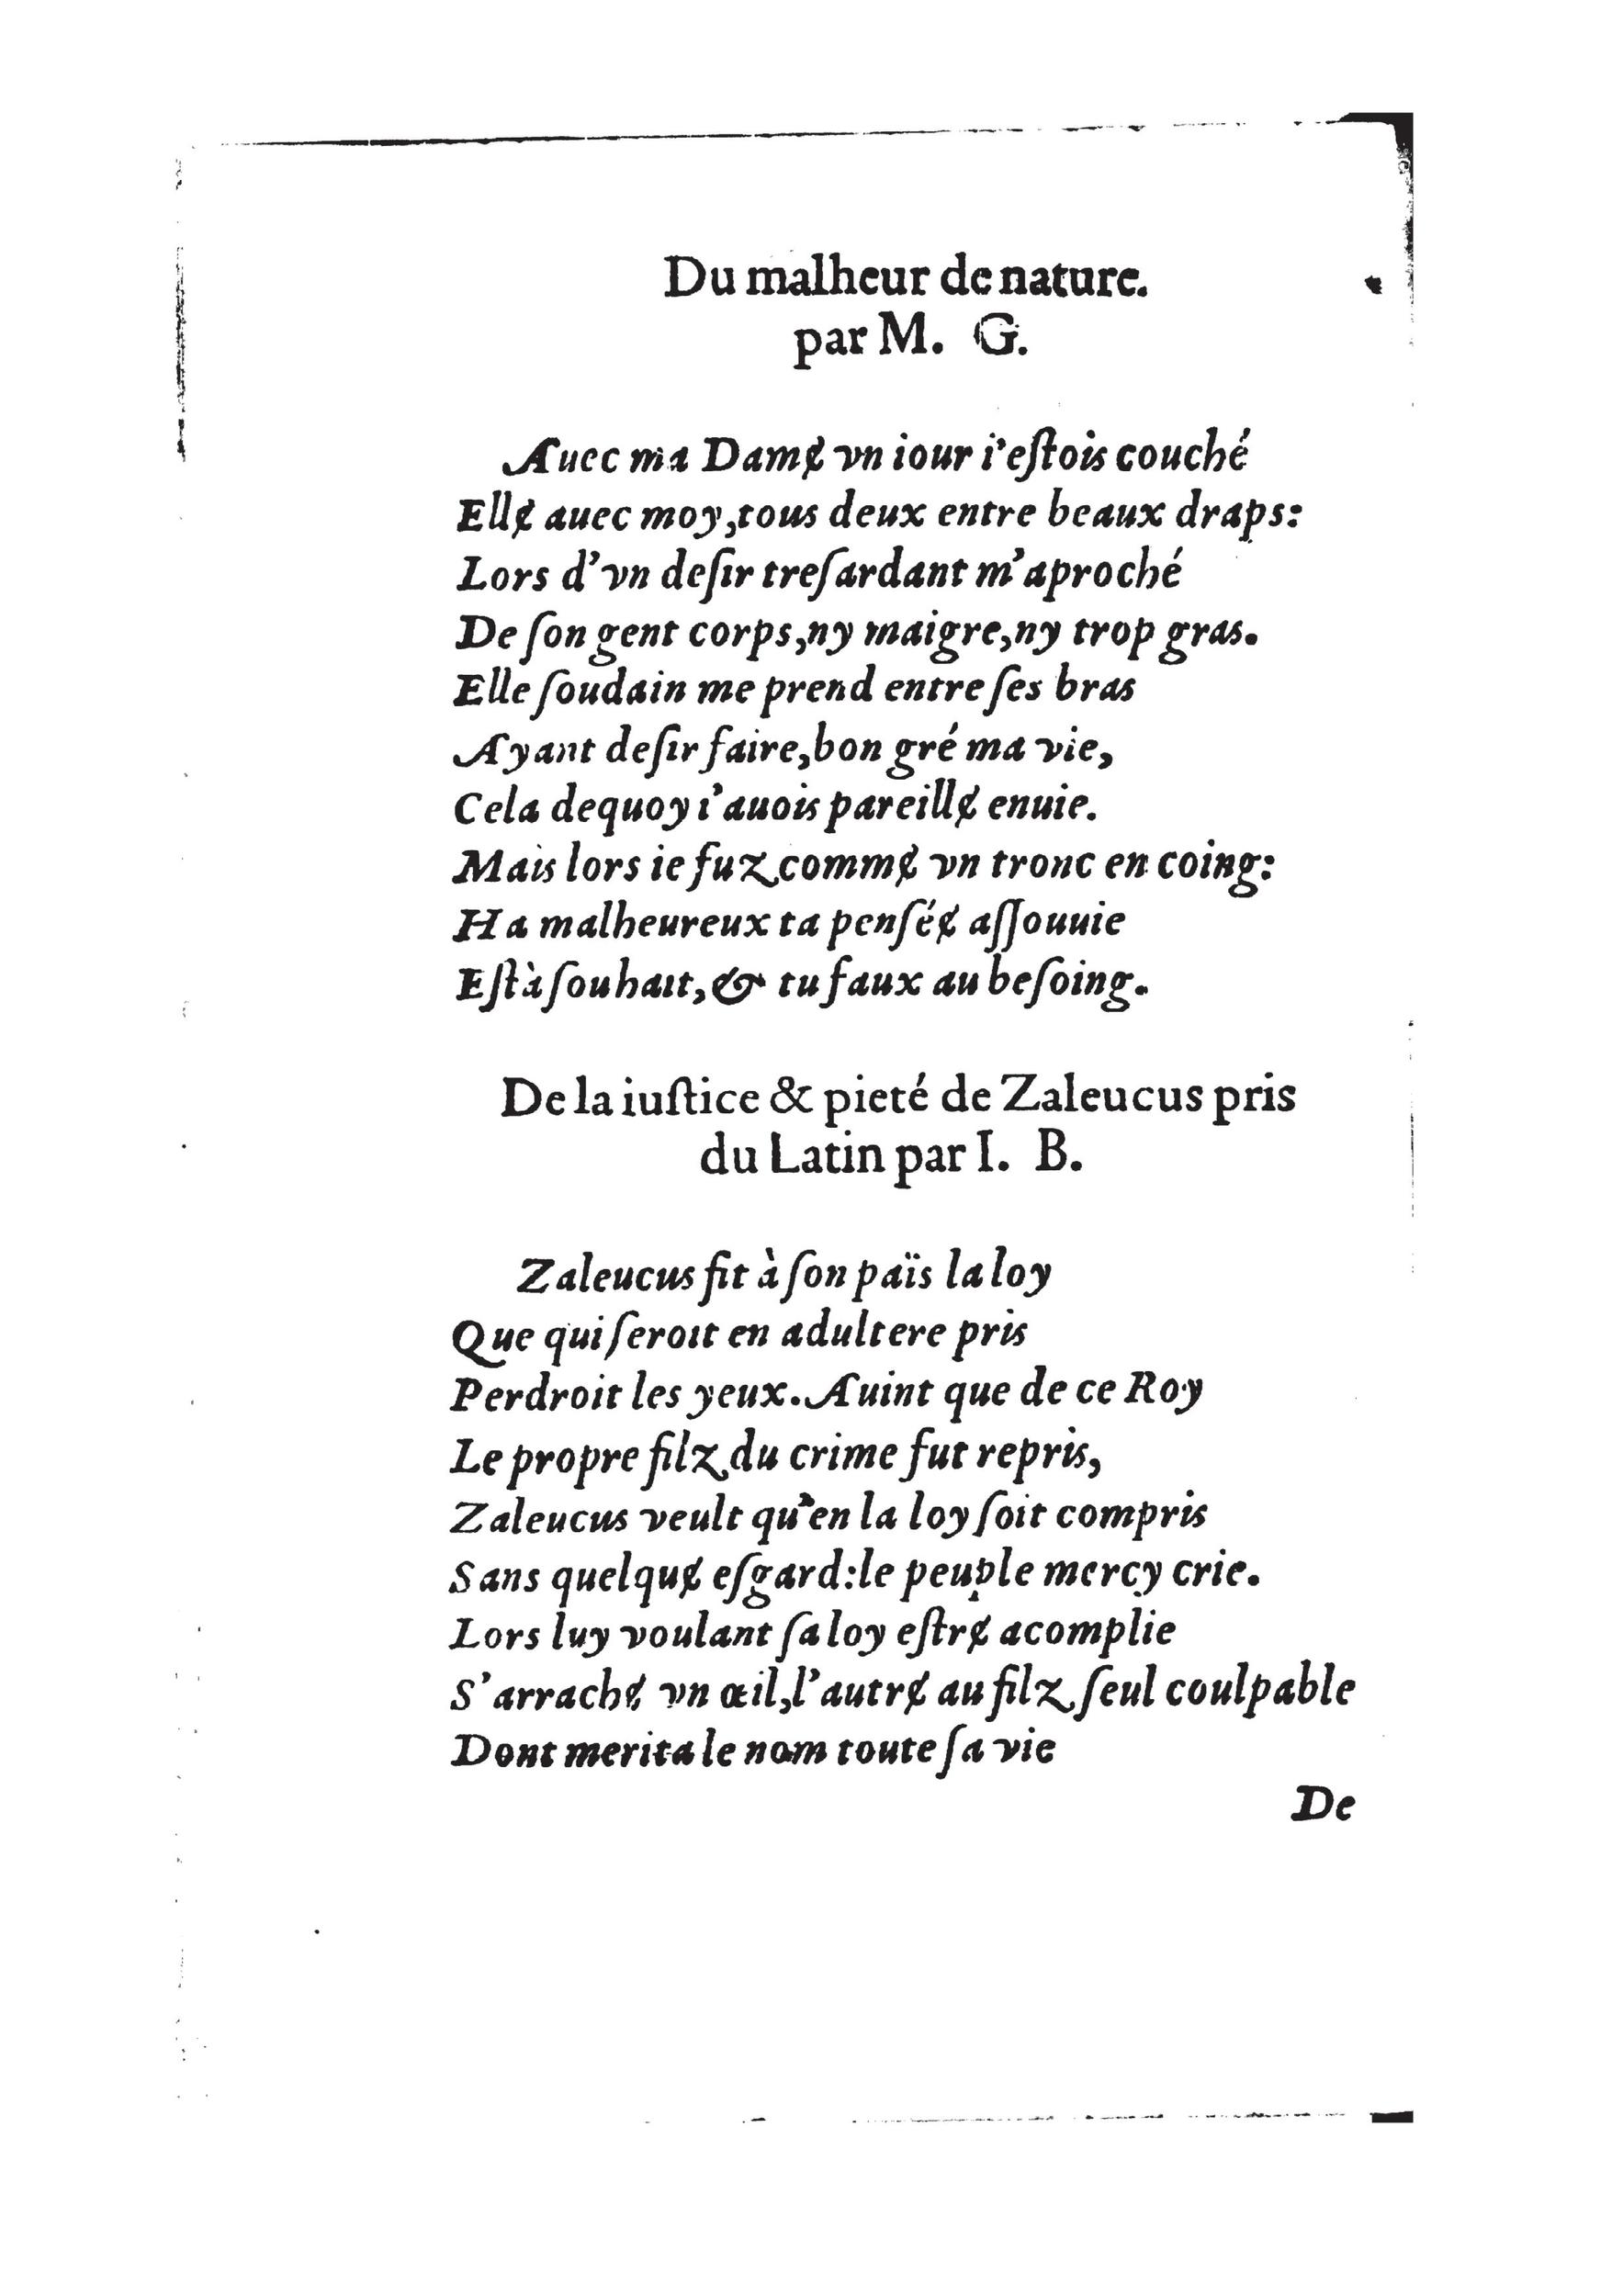 Du malheur de nature.
par M. G.
Auec ma Damɇ vn iour i'eſtois couché
Ellɇ auec moy,tous deux entre beaux draps:
Lors d'vn deſir treſardant m'aproché
De ſon gent corps,ny maigre,ny trop gras.
Elle ſoudain me prend entre ſes bras
Ayant deſir faire,bon gré ma vie,
Cela dequoy i'auois pareillɇ enuie.
Mais lors ie fuz commɇ vn tronc en coing:
Ha malheureux ta penſéɇ aſſouuie
Eſt à ſouhait,& tu faux au beſoing.
De la iuſtice & pieté de Zaleucus pris
du Latin par I. B.
Zaleucus fit à ſon païs la loy
Que qui ſeroit en adultere pris
Perdroit les yeux. Auint que de ce Roy
Le propre filz du crime fut repris,
Zaleucus veult qu'en la loy ſoit compris
Sans quelquɇ eſgard:le peuple mercy crie.
Lors luy voulant ſa loy eſtrɇ acomplie
S'arrachɇ vn œil,l'autrɇ au filz ſeul coulpable
Dont merita le nom toute ſa vie
De